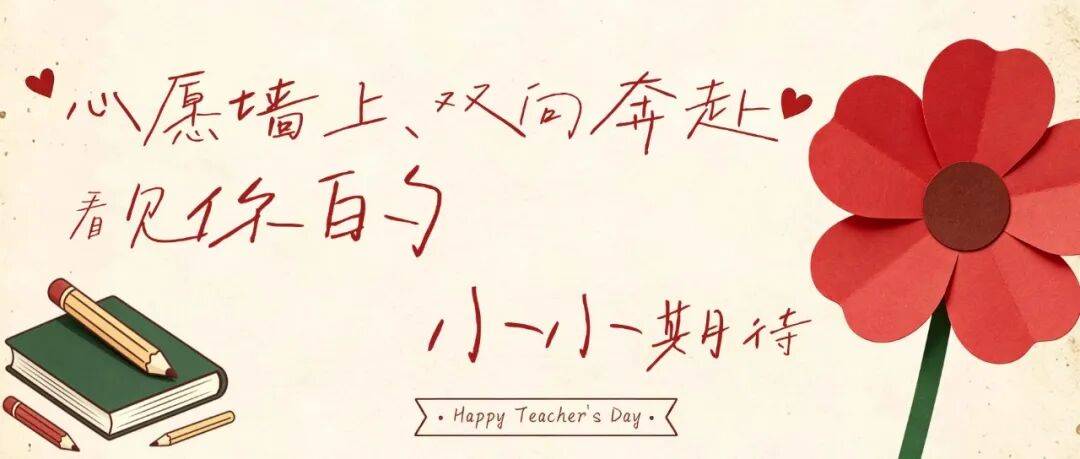 心愿墙上、双向奔赴
看见你的
小小期待
· Happy Teacher's Day ·